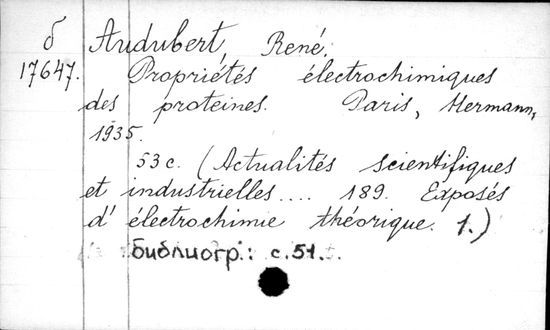 б Audubert, René.
17647. Propriétés électrochimiques
des proteines. Paris, Hermann,
1935.
53 c. (Actualités scientifiques
et industrielles.... 189. Exposés
d'électrochimie théorique. 1.)
Библиогр.: с.51.